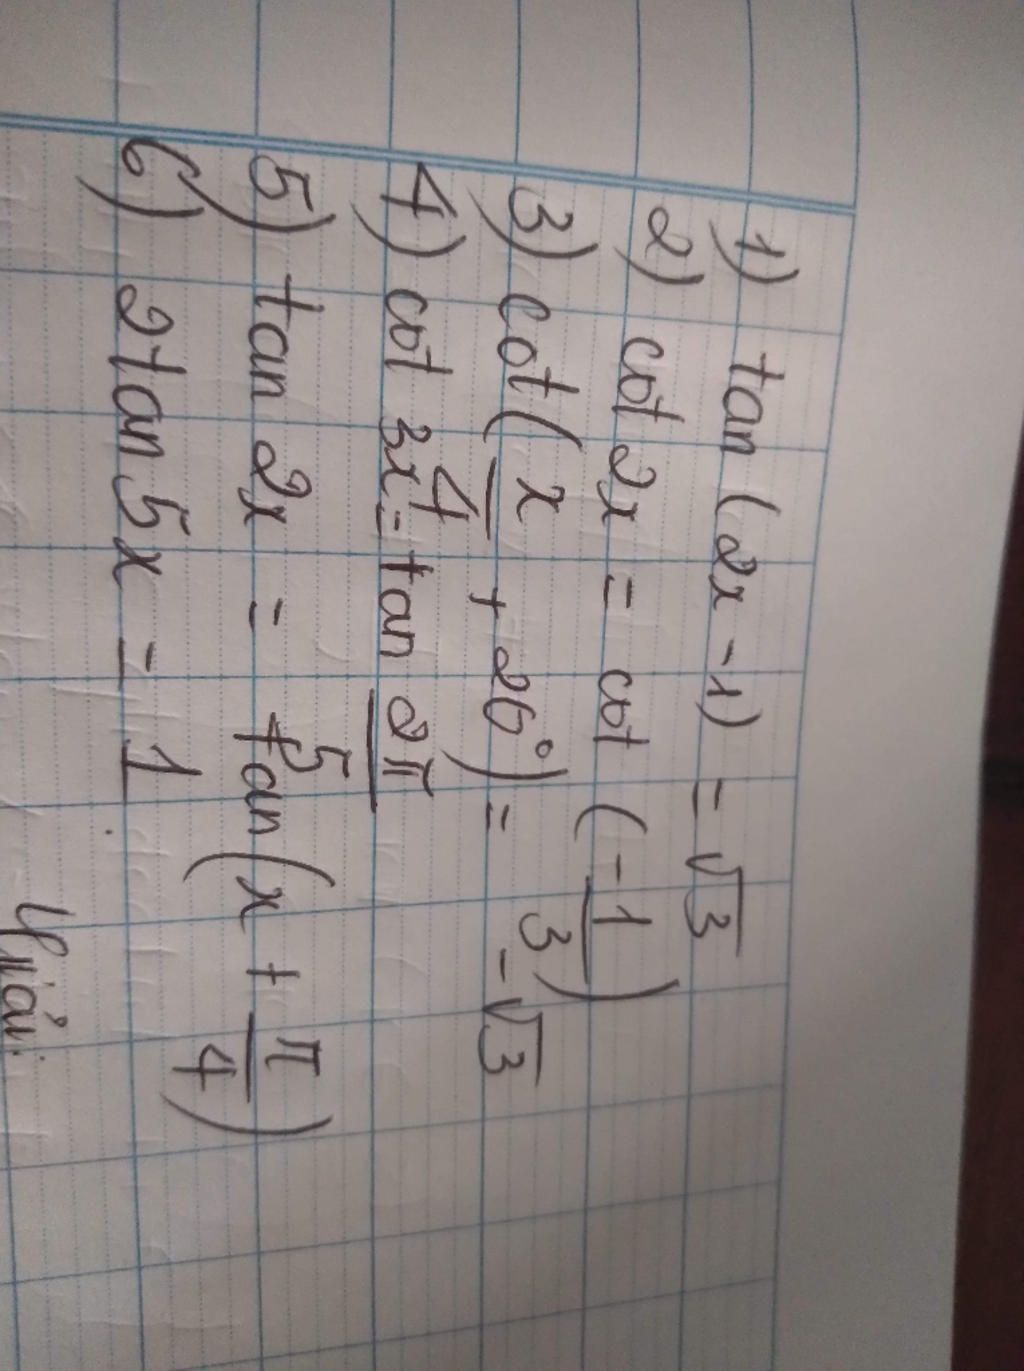 1) tan (2x - 1) = √3
2) cot 2x = cot (-1/3)
3) cot (x/4 + 20°) = -√3
4) cot 3x = tan 2π/5
5) tan 2x = tan (x + π/4)
6) 2tan 5x = 1
Giải: